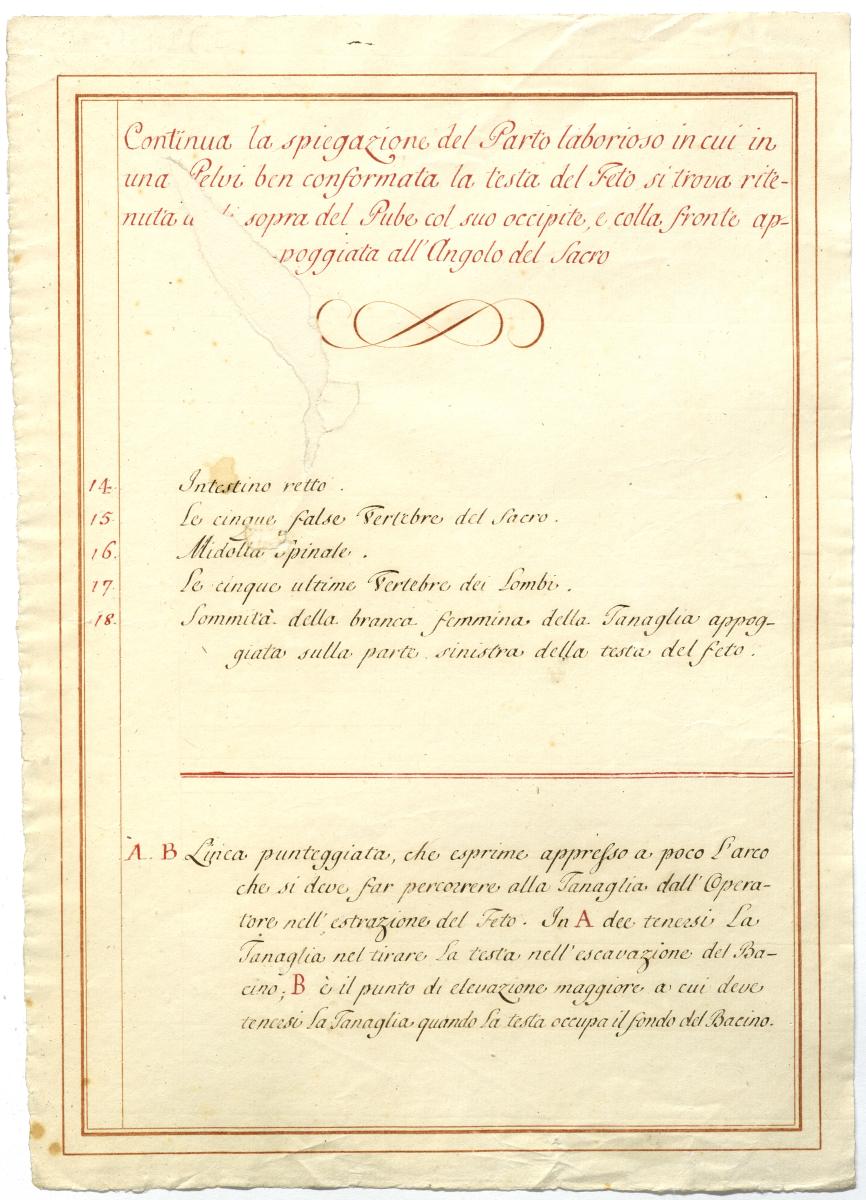 Continua la spiegazione del Parto laborioso in cui in
una Pelvi ben conformata la testa del Feto si trova rite-
nuta sopra del Pube col suo occipite, e colla fronte ap-
-poggiata all'Angolo del Sacro
14. Intestino retto.
15. Le cinque false Vertebre del Sacro.
16. Midolla Spinale.
17. Le cinque ultime Vertebre dei Lombi.
18. Sommità della branca femmina della Tanaglia appog-
giata sulla parte sinistra della testa del feto.
A. B Linea punteggiata, che esprime appresso a poco l'arco
che si deve far percorrere alla Tanaglia dall'Opera-
tore nell'estrazione del Feto. In A dee tenersi La
Tanaglia nel tirare La testa nell'escavazione del Ba-
cino; B è il punto di elevazione maggiore a cui deve
tenersi La Tanaglia quando La testa occupa il fondo del Bacino.